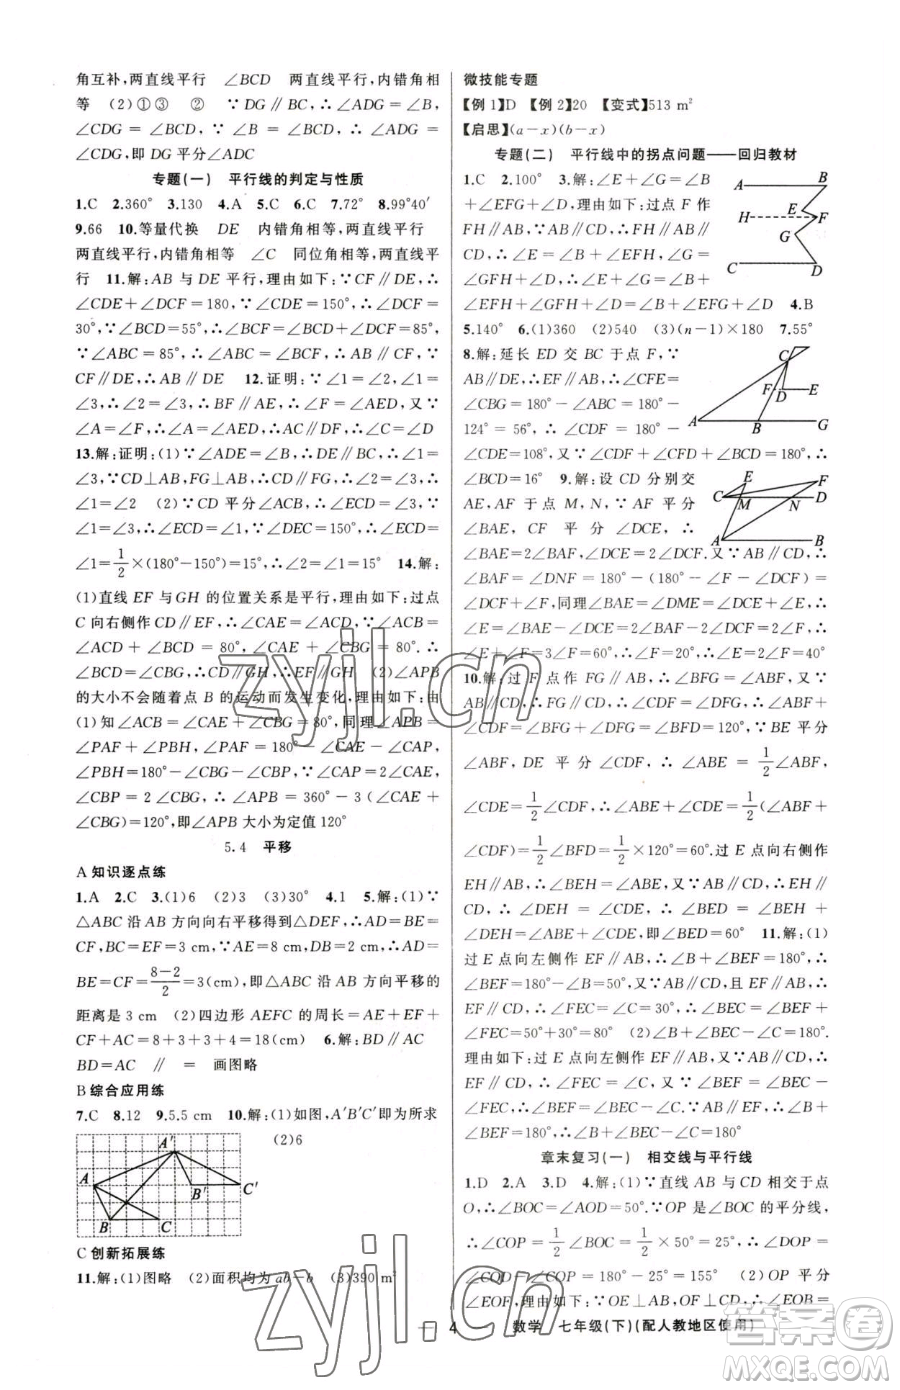 角互补,两直线平行 ∠BCD 两直线平行,内错角相
等 (2)①③ ② ∵DG∥BC,∴∠ADG=∠B,
∠CDG=∠BCD,∵∠B=∠BCD,∴∠ADG=
∠CDG,即DG平分∠ADC
专题(一) 平行线的判定与性质
1.C 2.360° 3.130 4.A 5.C 6.C 7.72° 8.99°40′
9.66 10.等量代换 DE 内错角相等,两直线平行
两直线平行,内错角相等 ∠C 同位角相等,两直线平
行 11.解:AB与DE平行,理由如下:∵CF∥DE,∴
∠CDE+∠DCF=180,∵∠CDE=150°,∴∠DCF=
30°,∵∠BCD=55°,∴∠BCF=∠BCD+∠DCF=85°,
∵∠ABC=85°,∴∠ABC=∠BCF,∴AB∥CF,∵
CF∥DE,∴AB∥DE 12.证明:∵∠1=∠2,∠1=
∠3,∴∠2=∠3,∴BF∥AE,∴∠F=∠AED,又∵
∠A=∠F,∴∠A=∠AED,∴AC∥DF,∴∠C=∠D
13.解:证明:(1)∵∠DEC+∠ACB=180°,∴DE∥BC,
∵CD⊥AB,FG⊥AB,∴CD∥FG,∴∠2=∠3,∴
∠1=∠2 (2)∵CD平分∠ACB,∴∠ECD=∠3,∵
∠1=∠3,∴∠ECD=∠1,∵∠DEC=150°,∴∠ECD=
∠1=1/2×(180°-150°)=15°,∴∠2=15° 14.解:
(1)直线EF与GH的位置关系是平行,理由如下:过点
C向右侧作CD∥EF,∴∠CAE=∠ACD,∵∠ACB=
∠ACD+∠BCD=80°,∠CAE+∠CBG=80°,∴
∠BCD=∠CBG,∴CD∥GH,∴EF∥GH (2)∠APB
的大小不会随着点B的运动而发生变化,理由如下:由
(1)知∠ACB=∠CAE+∠CBG=80°,同理∠APB=
∠PAF+∠PBH,∵∠PAF=180°-∠CAE-∠CAP,
∠PBH=180°-∠CBG-∠CBP,∵∠CAP=2∠CAE,
∠CBP=2∠CBG,∴∠APB=360°-3(∠CAE+
∠CBG)=120°,即∠APB大小为定值120°
5.4 平移
A知识逐点练
1.A 2.C 3.(1)6 (2)3 (3)30° 4.1 5.解:(1)∵
△ABC沿AB方向向右平移得到△DEF,∴AD=BE=
CF,BC=EF=3 cm,∵AE=8 cm,DB=2 cm,∴AD=
BE=CF=8-2/2=3(cm),即△ABC沿AB方向平移的
距离是3 cm (2)四边形AEFC的周长=AE+EF+
CF+AC=8+3+3+4=18(cm) 6.解:BD∥AC
BD=AC ∥ = 画图略
B综合应用练
7.C 8.12 9.5.5 cm 10.解:(1)如图,A′B′C′即为所求
(2)6
A A′ B B′ C C′
C创新拓展练
11.解:(1)图略 (2)面积均为ab-b (3)390 m²
微技能专题
【例1】D 【例2】20 【变式】513 m²
【启思】(a-x)(b-x)
专题(二) 平行线中的拐点问题——回归教材
1.C 2.100° 3.解:∠E+∠G=∠B
+∠EFG+∠D,理由如下:过点F作
FH∥AB,∵AB∥CD,∴AB∥FH∥
CD,∴∠B+∠EFH,∠GFH+∠D=
∠GFH+∠D,∴∠E+∠G=∠B+
∠EFH+∠GFH+∠D=∠B+∠EFG+∠D 4.B
A B E H F G C D
5.140° 6.(1)360 (2)540 (3)(n-1)×180 7.55°
8.解:延长ED交BC于点F,∵
AB∥DE,∴∠BFD,∴∠CFE=
∠CBG=180°-∠ABC=180°-
124°=56°,∴∠CDF=180°-
∠CDE=108°,又∵∠CDF+∠CFD+∠BCD=180°,∴
∠BCD=16° 9.解:设CD分别交
AE,AF于点M,N,∵AF平分
∠BAE,CF平分∠DCE,∴
∠BAE=2∠BAF,∠DCE=2∠DCF,又∵AB∥CD,∴
∠BAF=∠DNF=180°-(180°-∠F-∠DCF)=
∠F+∠DCF,同理∠BAE=∠DME=∠DCE+∠E,∴
∠E=∠BAE-∠DCE=2∠BAF-2∠DCF=2∠F,
∵∠E+∠F=60°,∴∠F=20°,∴∠E=2∠F=40°
C F D E A B G
E F C M N D A B
10.解:过F点作FG∥AB,∵AB∥CD,∴FG∥CD,∴
∠ABF=∠BFG,∠CDF=∠DFG,∴∠ABF+
∠CDF=∠BFG+∠DFG=∠BFD=120°,∵BE平分
∠ABF,DE平分∠CDF,∴∠ABE=1/2∠ABF,
∠CDE=1/2∠CDF,∴∠ABE+∠CDE=1/2(∠ABF+
∠CDF)=1/2∠BFD=1/2×120°=60°,过E点向右侧作
EH∥AB,∵AB∥CD,∴EH∥CD,∴∠BEH=
∠ABE,∠DEH=∠CDE,∴∠BED=∠BEH+
∠DEH=∠ABE+∠CDE,即∠BED=60° 11.解:(1)
过E点向左侧作EF∥AB,∴∠B+∠BEF=180°,∴
∠BEF=180°-∠B=50°,又∵AB∥CD,且EF∥AB,
∴EF∥CD,∴∠FEC=∠C=30°,∴∠BEC=∠BEF+
∠FEC=50°+30°=80° (2)∠B+∠BEC-∠C=180°.
理由如下:过E点向左侧作EF∥AB,又∵AB∥CD,
∴EF∥CD,∴∠FEC=∠C,∠BEF=∠BEC-
∠FEC=∠BEC-∠C,又∵AB∥EF,∴∠B+∠BEF=
180°,∴∠B+∠BEC-∠C=180°
章末复习(一) 相交线与平行线
1.D 2.A 3.D 4.解:(1)∵直线AB与CD相交于点
O,∴∠BOC=∠AOD=50°.∵OP是∠BOC的平分线,
∴∠COP=1/2∠BOC=1/2×50°=25°,∴∠DOP=
∠COD-∠COP=180°-25°=155° (2)∵OP平分
∠EOF,理由如下:∵OE⊥AB,OF⊥CD,∴∠EOB=
4 数学 七年级(下)(配人教地区使用)
zyjl.cn
zyjl.cn
答案圈
MXQE.COM